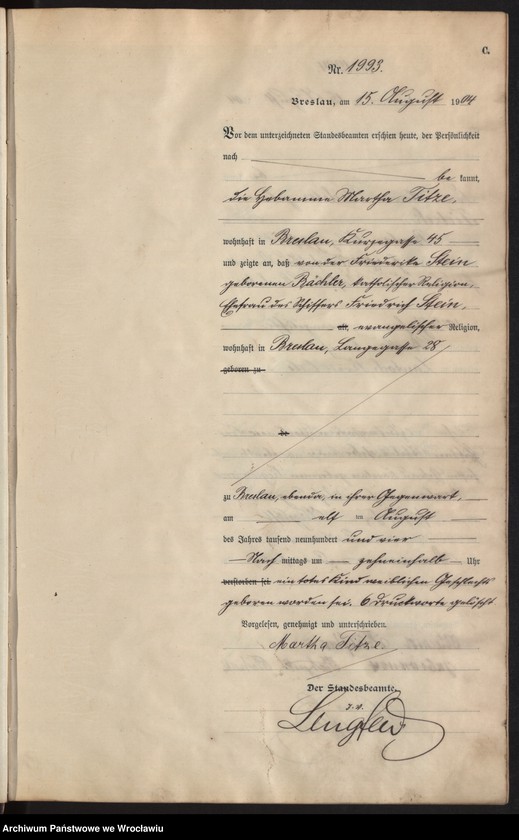 C.
Nr. 1993.
Breslau, am 15. August 1904
Vor dem unterzeichneten Standesbeamten erschien heute, der Persönlichkeit
nach be kannt,
die Hebamme Martha Titze,
wohnhaft in Breslau, Kurzegasse 45
und zeigte an, daß von der Friederike Stein
geborenen Bächler, katholischer Religion,
Ehefrau des Schiffers Friedrich Stein,
alt, evangelischer Religion,
wohnhaft in Breslau, Langegasse 28
geboren zu
de
zu Breslau, ebenda, in ihrer Gegenwart,
am elf ten August
des Jahres tausend neunhundert und vier
Nach mittags um zehneinhalb Uhr
verstorben sei. ein totes Kind weiblichen Geschlechts
geboren worden sei. 6 Druckworte gelöscht
Vorgelesen, genehmigt und unterschrieben.
Martha Titze
Der Standesbeamte.
J. V.
Archiwum Państwowe we Wrocławiu